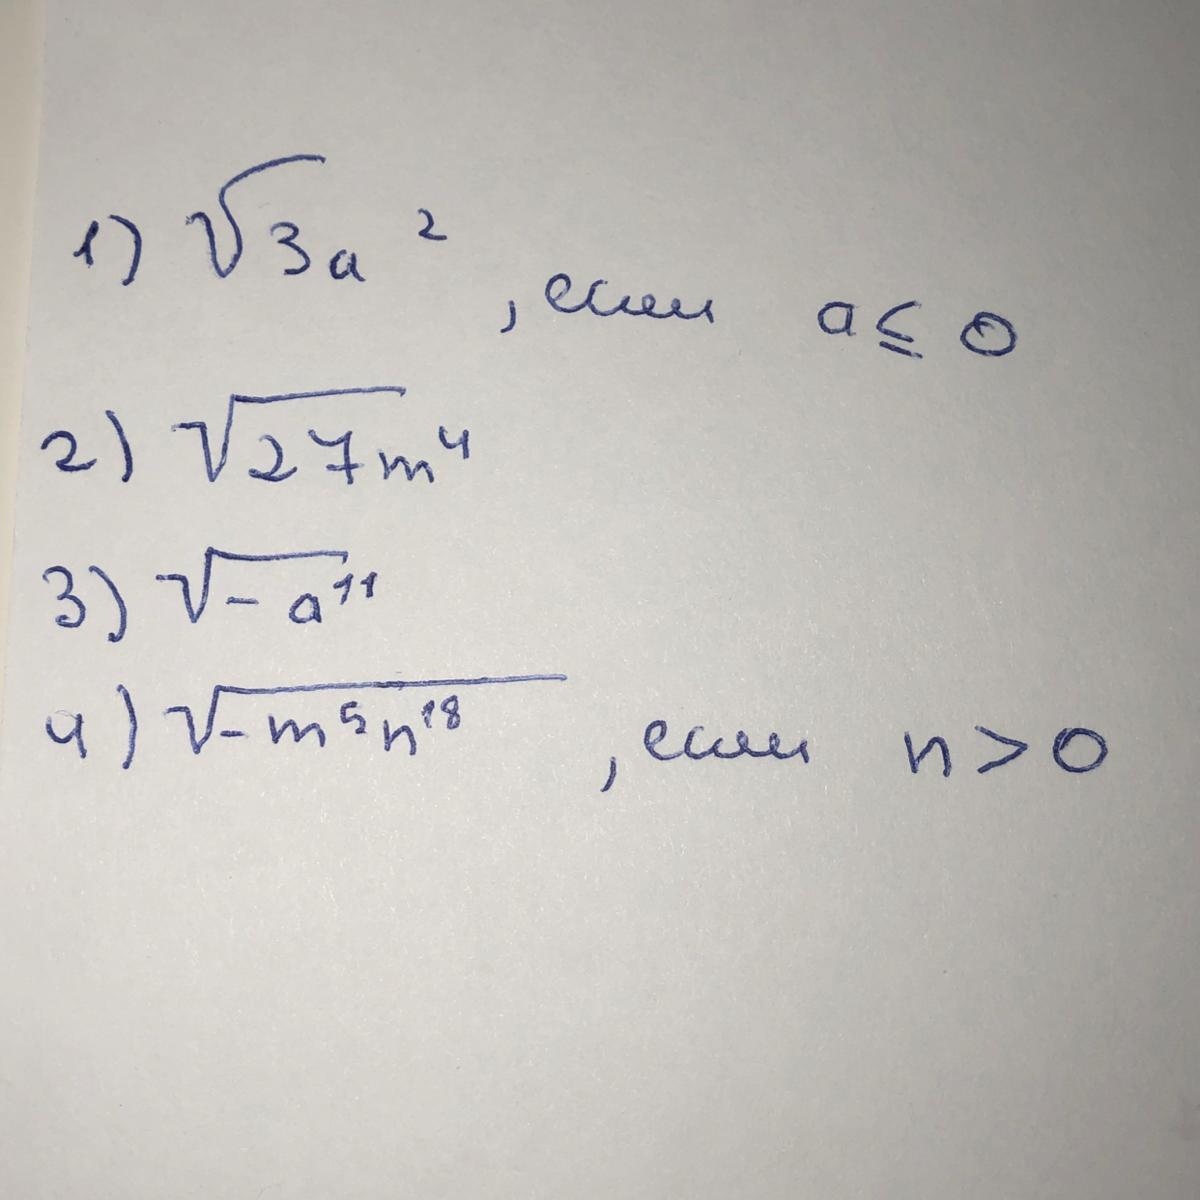 1) √3a², если a ≤ 0
2) √27m⁴
3) √-a¹¹
4) √-m⁵n¹⁸, если n > 0